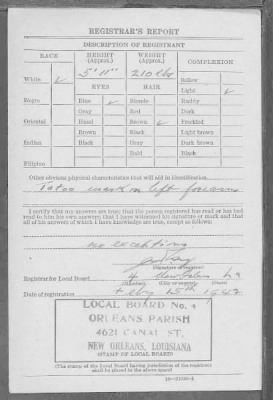 REGISTRAR'S REPORT
DESCRIPTION OF REGISTRANT
RACE HEIGHT (Approx.) WEIGHT (Approx.) COMPLEXION
5' 11" 210 lbs Sallow
White ✓ EYES HAIR Light ✓
Negro Blue ✓ Blonde Ruddy
Gray Red Dark
Oriental Hazel Brown ✓ Freckled
Brown Black Light brown
Indian Black Gray Dark brown
Bald Black
Filipino
Other obvious physical characteristics that will aid in identification
Tatoo mark on left forearm
I certify that my answers are true; that the person registered has read or has had
read to him his own answers; that I have witnessed his signature or mark and that
all of his answers of which I have knowledge are true, except as follows:
no exceptions
(Signature of registrar)
Registrar for Local Board 4 New Orleans La
(Number) (City or county) (State)
Date of registration 15th 1942
LOCAL BOARD No. 4
ORLEANS PARISH
4621 CANAL ST.
NEW ORLEANS, LOUISIANA
(STAMP OF LOCAL BOARD)
(The stamp of the Local Board having jurisdiction of the registrant
shall be placed in the above space)